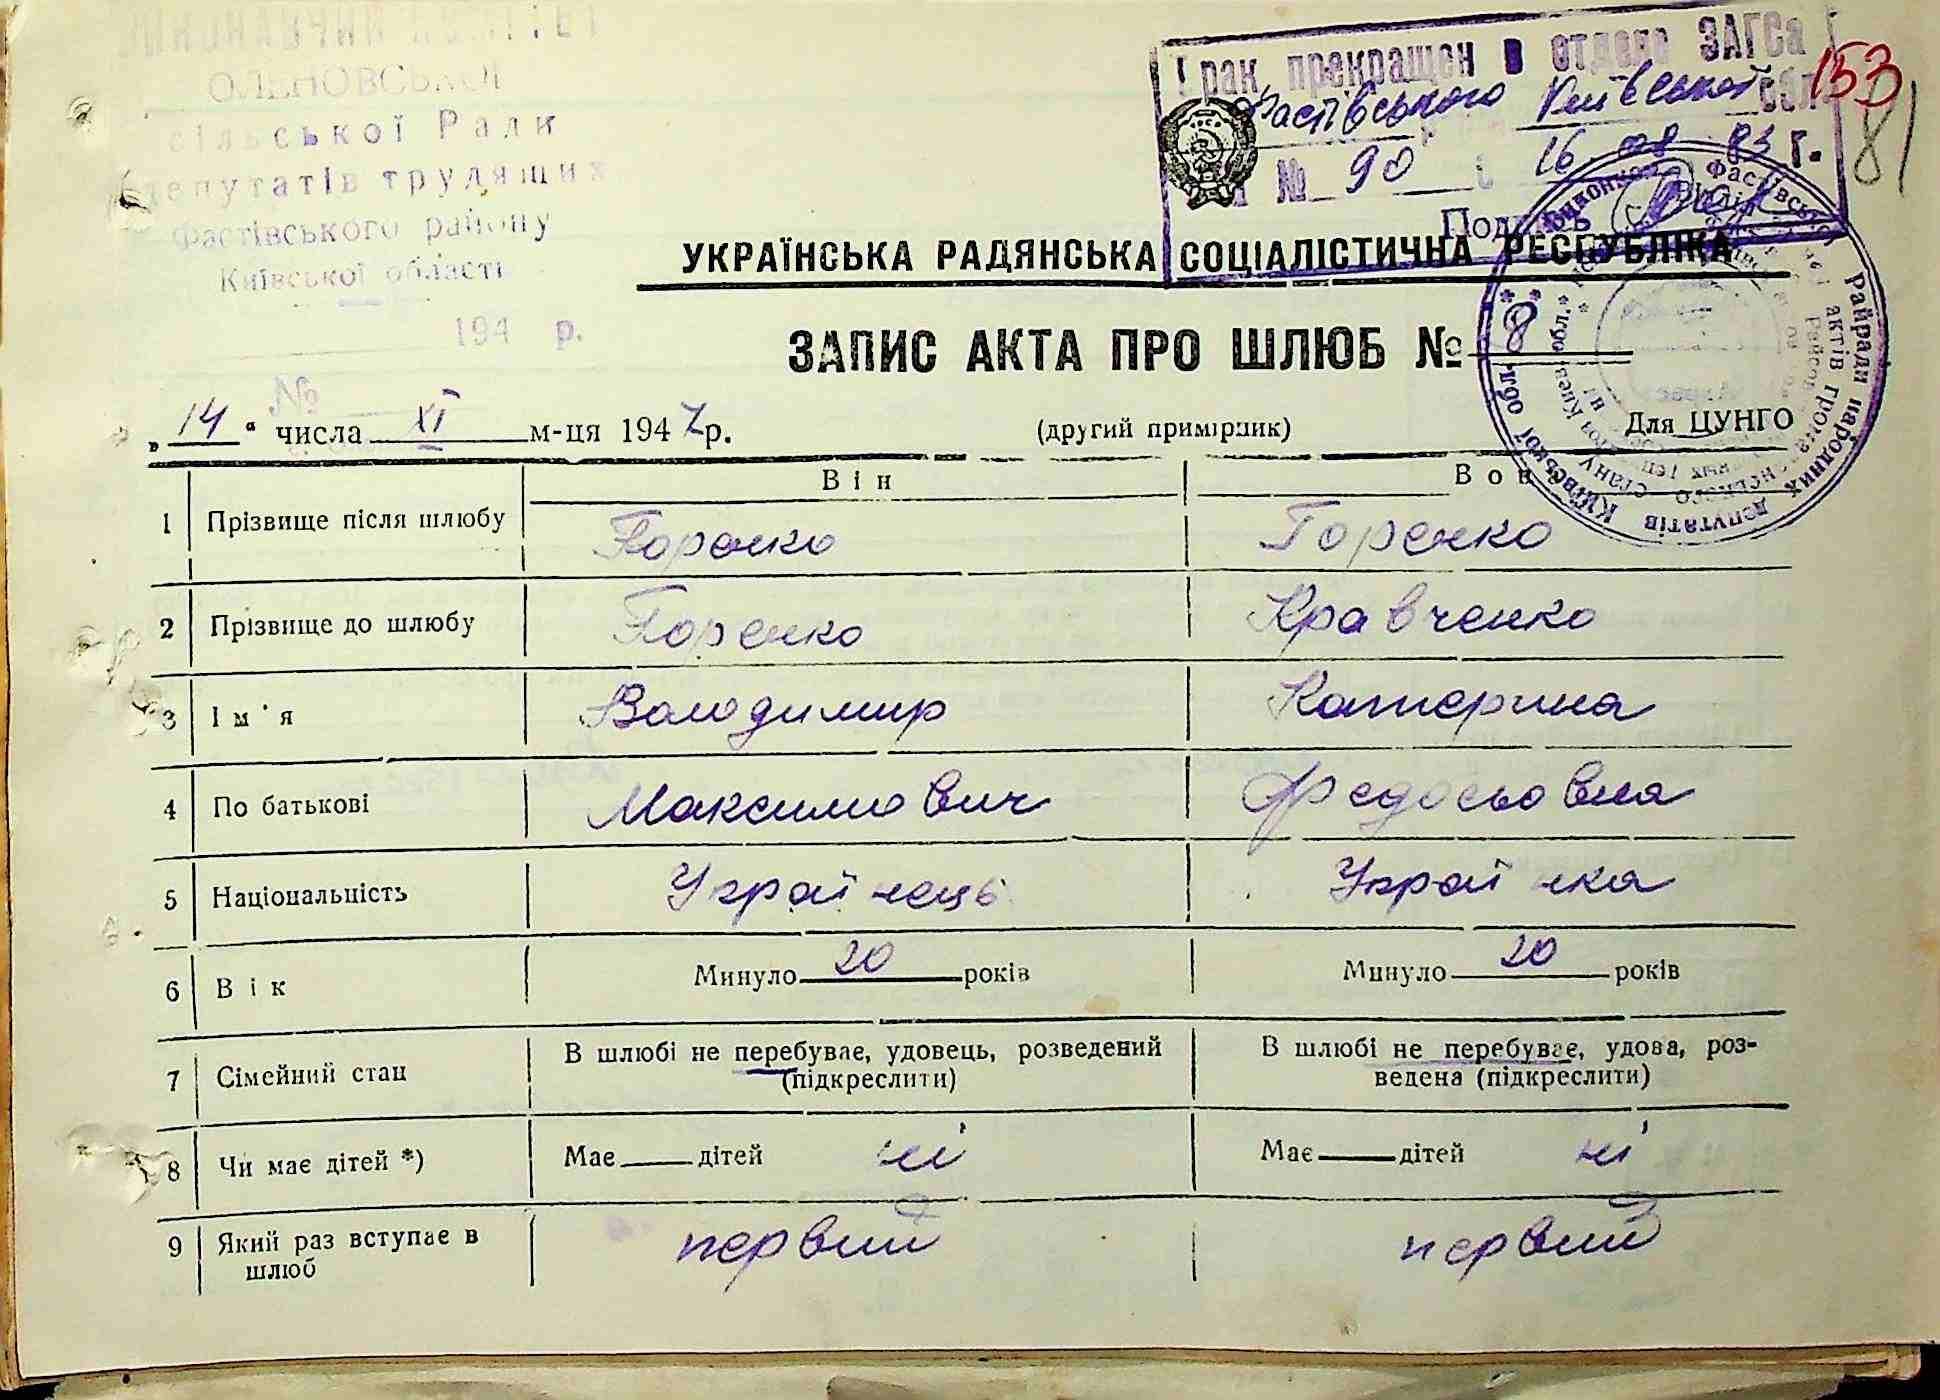 ВИКОНАВЧИЙ КОМІТЕТ
ОЛЕНОВСЬКОЇ
сільської Ради
депутатів трудящих
Фастівського району
Київської області
194 р.
№
Брак прекращен в отделе ЗАГСа
Фастівського Київської обл
№ 90 16 08 83 г.
Подпись
153
81
УКРАЇНСЬКА РАДЯНСЬКА СОЦІАЛІСТИЧНА РЕСПУБЛІКА
ЗАПИС АКТА ПРО ШЛЮБ № 8
„14“ числа XI м-ця 1947 р. (другий примірник) Для ЦУНГО
Він Вона
1 Прізвище після шлюбу Горенко Горенко
2 Прізвище до шлюбу Горенко Кравченко
3 Ім'я Володимир Катерина
4 По батькові Максимович Федосьовна
5 Національність Українець Українка
6 Вік Минуло 20 років Минуло 20 років
7 Сімейний стан В шлюбі не перебуває, удовець, розведений (підкреслити) В шлюбі не перебуває, удова, роз-
ведена (підкреслити)
8 Чи має дітей *) Має дітей ні Має дітей ні
9 Який раз вступає в шлюб первий первий
Райради народних депутатів Київської обл.